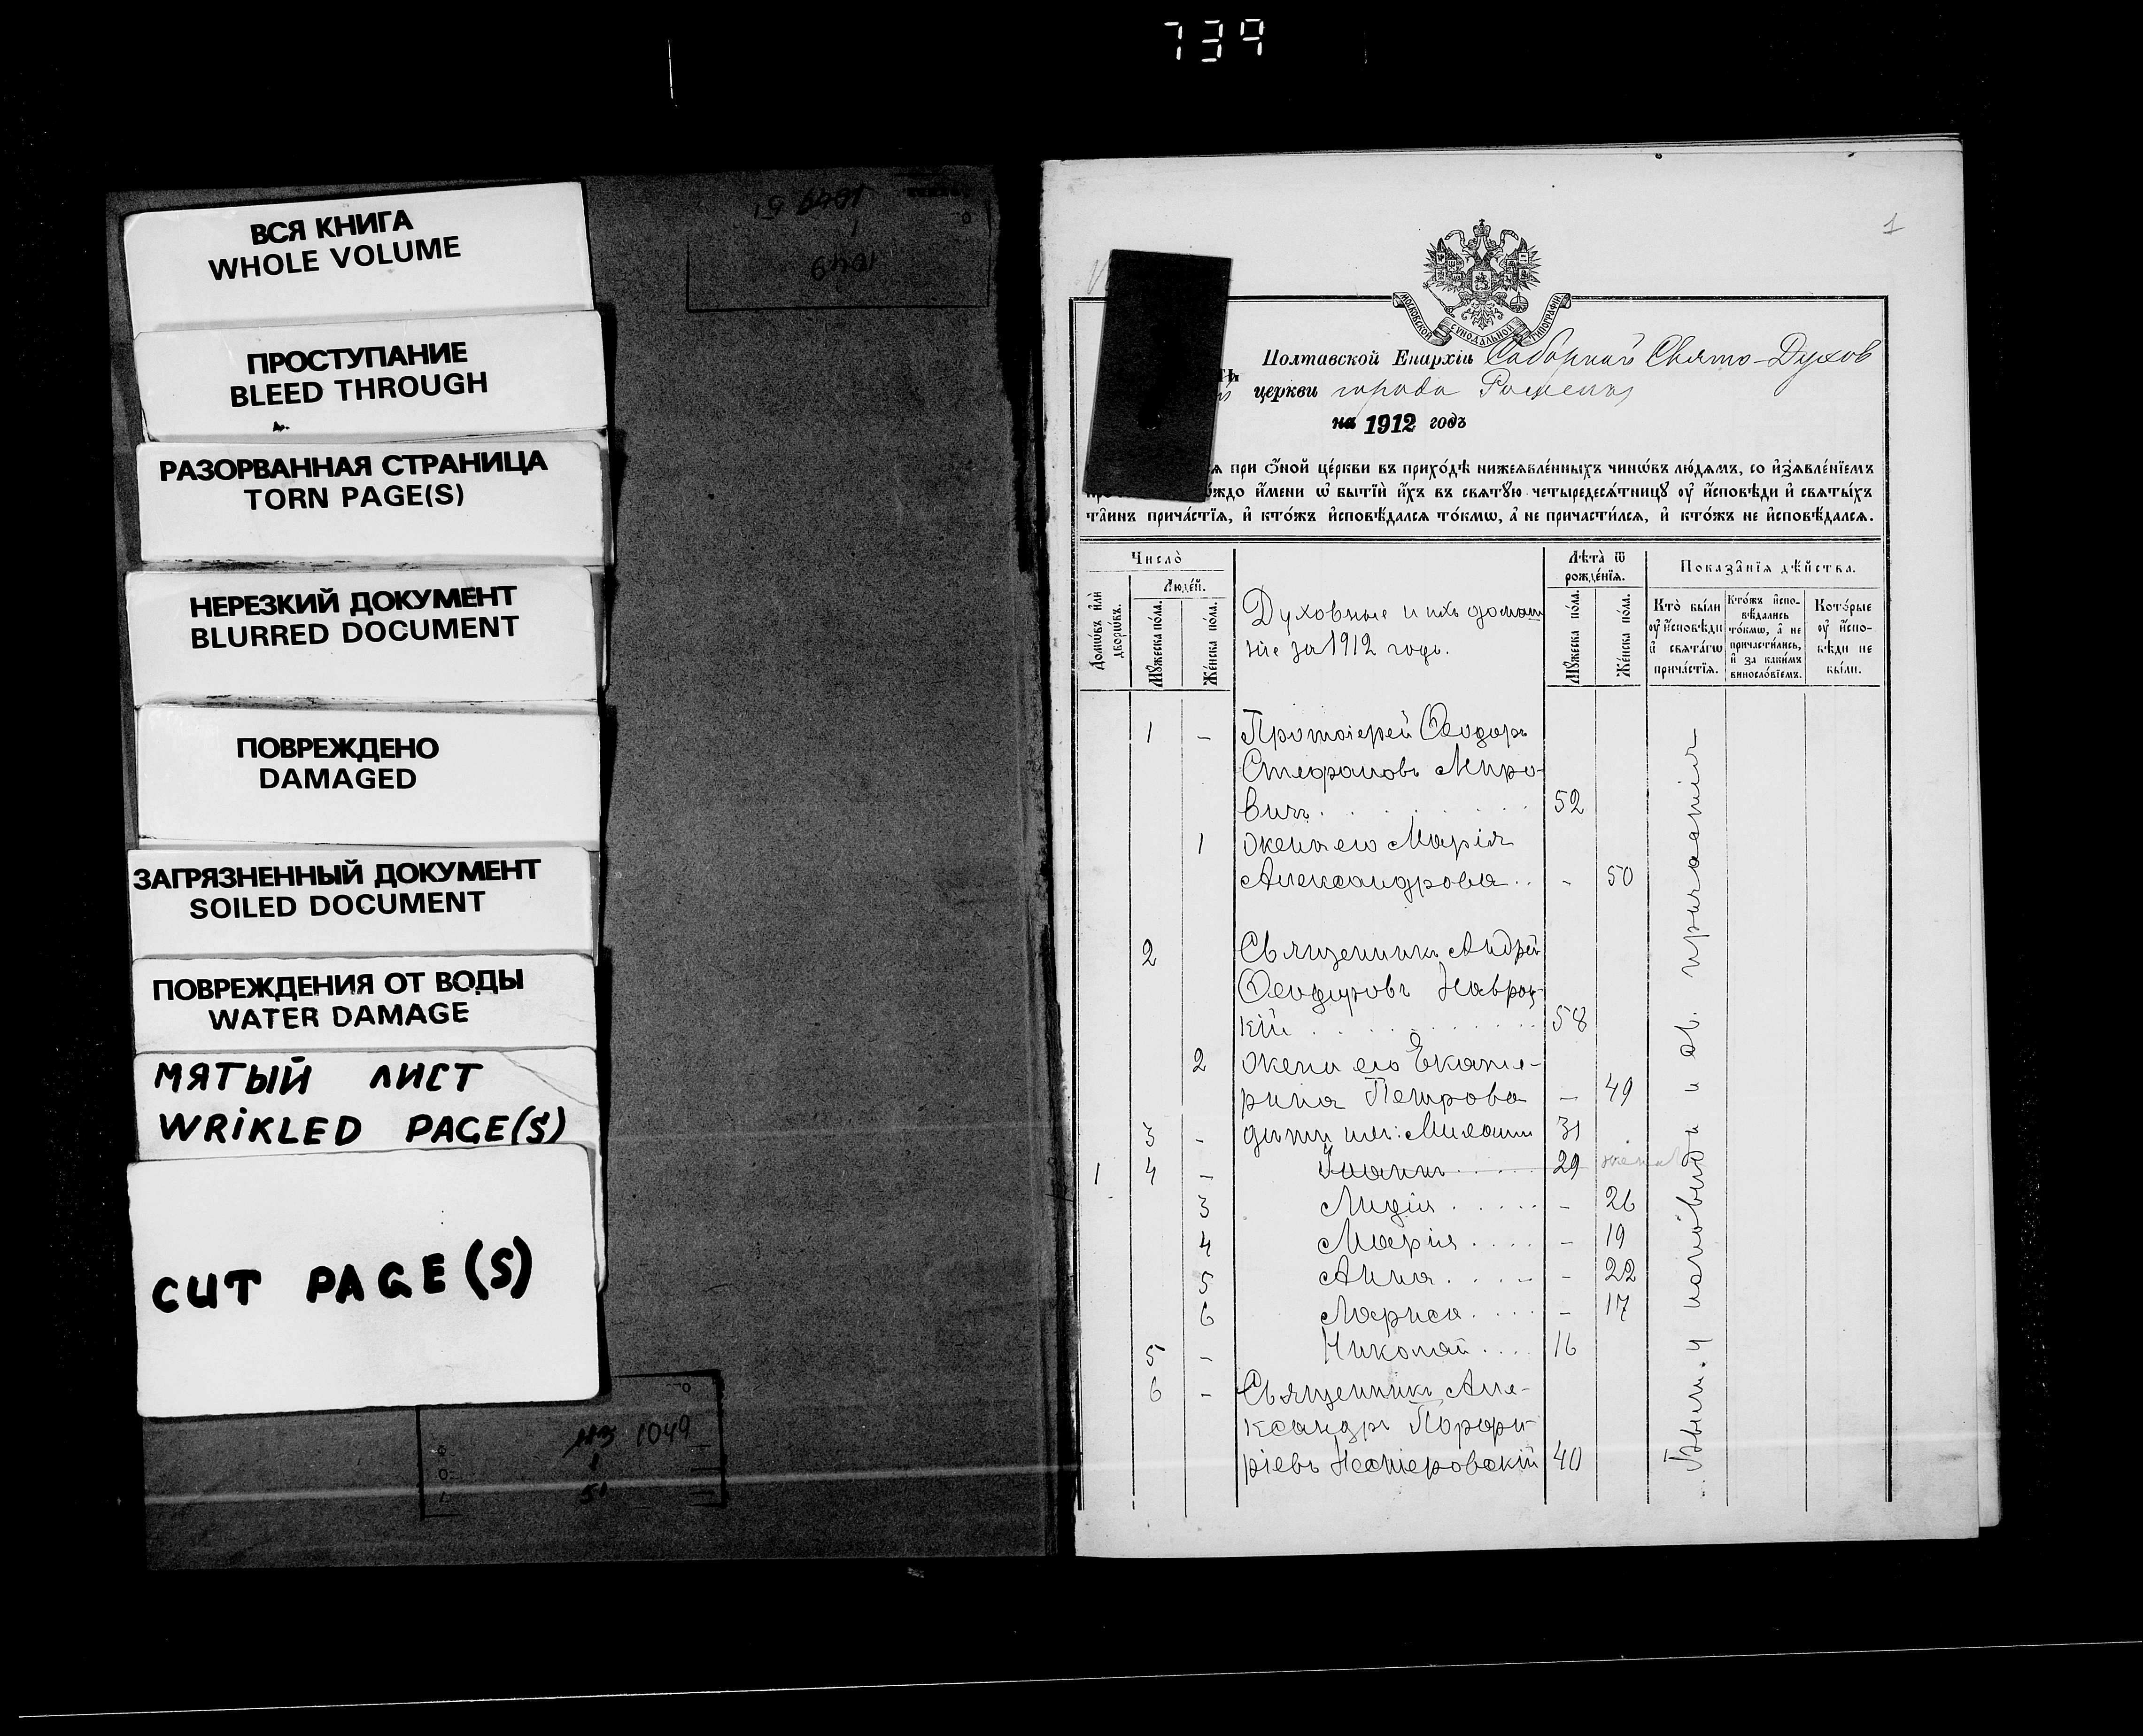 739
ВСЯ КНИГА
WHOLE VOLUME
ПРОСТУПАНИЕ
BLEED THROUGH
РАЗОРВАННАЯ СТРАНИЦА
TORN PAGE(S)
НЕРЕЗКИЙ ДОКУМЕНТ
BLURRED DOCUMENT
ПОВРЕЖДЕНО
DAMAGED
ЗАГРЯЗНЕННЫЙ ДОКУМЕНТ
SOILED DOCUMENT
ПОВРЕЖДЕНИЯ ОТ ВОДЫ
WATER DAMAGE
МЯТЫЙ ЛИСТ
WRIKLED PAGE(S)
CUT PAGE(S)
1049
1
51
1049
1
МОСКОВСКОЙ СѴНОДАЛЬНОЙ ТИПОГРАФІИ
Полтавской Епархіи Соборной Свято-Духов
церкви города Ромена
на 1912 годъ
при ѻ҆́ной це́ркви въ прихо́дѣ нижеѧвле́нныхъ чинѡ́въ лю́демъ, со и҆з̾ѧвле́нїемъ
и҆́мени ѡ҆ бытїѝ и҆́хъ въ свѧтꙋ́ю четыредесѧ́тницꙋ ᲂу҆ и҆́сповѣди и҆ свѧты́хъ
та̑инъ прича́стїѧ, и҆ кто́жъ и҆сповѣ́далсѧ то́кмѡ, а҆ не причасти́лсѧ, и҆ кто́жъ не и҆сповѣ́далсѧ.
Число̀
Люде́й.
Домѡ́въ и҆лѝ дворѡ́въ.
Мꙋ́жеска по́ла.
Же́нска по́ла.
Духовные и ихъ домаш
ніе за 1912 годъ.
Лѣта̀ ѿ рожде́нїѧ.
Мꙋ́жеска по́ла.
Же́нска по́ла.
Показа̑нїѧ дѣ́йства.
Кто̀ бы́ли ᲂу҆ и҆́сповѣди и҆ свѧта́гѡ прича́стїѧ.
Кто́жъ и҆спо-вѣ́дались то́кмѡ, а҆ не причасти́лись, и҆ за каки́мъ винослѡ́вїемъ.
Кото́рые ᲂу҆ и҆́спо-вѣди не бы́ли.
1 - Протоіерей Ѳеодоръ
Стефановъ Миро-
вичъ 52
1 жена его Марія
Александрова - 50
2 Священникъ Андрей
Ѳеодоровъ Навроц-
кій 58
2 жена его Екате-
рина Петрова - 49
3 - дѣти ихъ: Михаилъ 31
1 4 - Іоаннъ 29
3 Лидія - 26
4 Марія - 19
5 Анна - 22
6 Лариса - 17
5 - Николай 16
6 - Священникъ Але-
ксандръ Порфи-
ріевъ Нестеровскій 40
Были у исповѣди и св. причастія